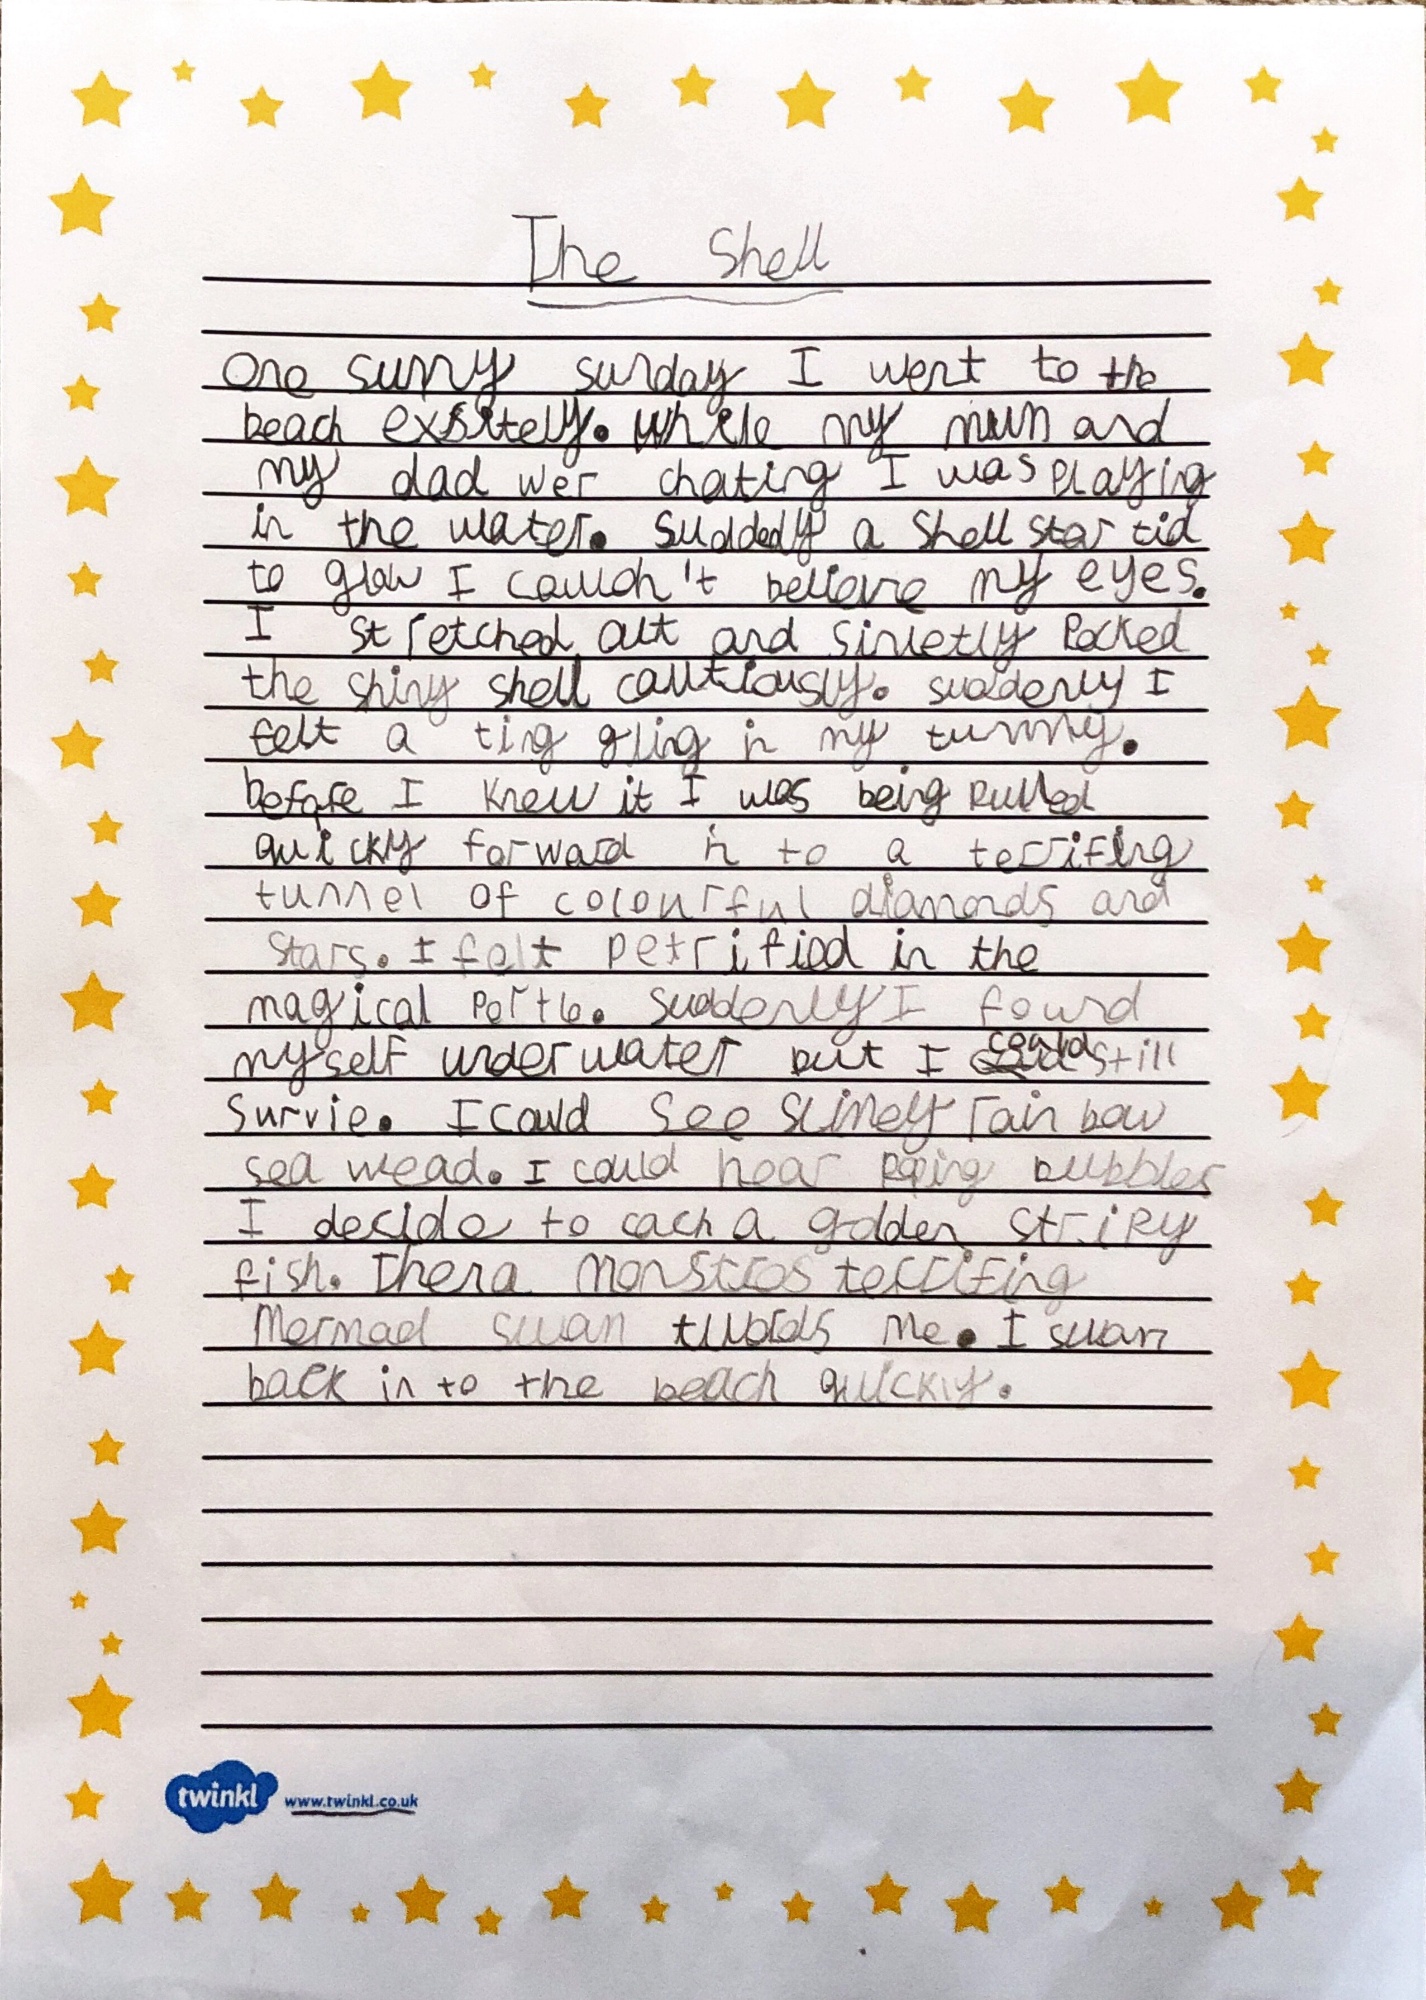 The Shell
One sunny sunday I went to the
beach exsitely. While my mum and
my dad wer chating I was playing
in the water. Suddedly a shell startid
to glow I couldn't believe my eyes.
I stretched out and sinletly Pocked
the shiny shell cautiously. suddenly I
felt a ting gling in my tummy.
before I knew it I was being pulled
quickly forward in to a terrifing
tunnel of colourful diamonds and
stars. I felt petrified in the
magical Portle. Suddenly I found
my self under water but I could still
Survie. I could see slimey rain bow
sea wead. I could hear poping bubbles
I decide to cach a golden stripy
fish. Then a monstros terrifing
Mermad swam twords me. I swam
back in to the beach quickly.
twinkl www.twinkl.co.uk